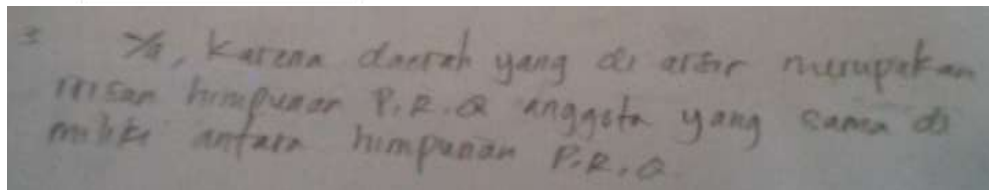 3 Ya, Karena daerah yang di arsir merupakan
irisan himpunan P.R.Q anggota yang sama di
miliki antara himpunan P.R.Q.